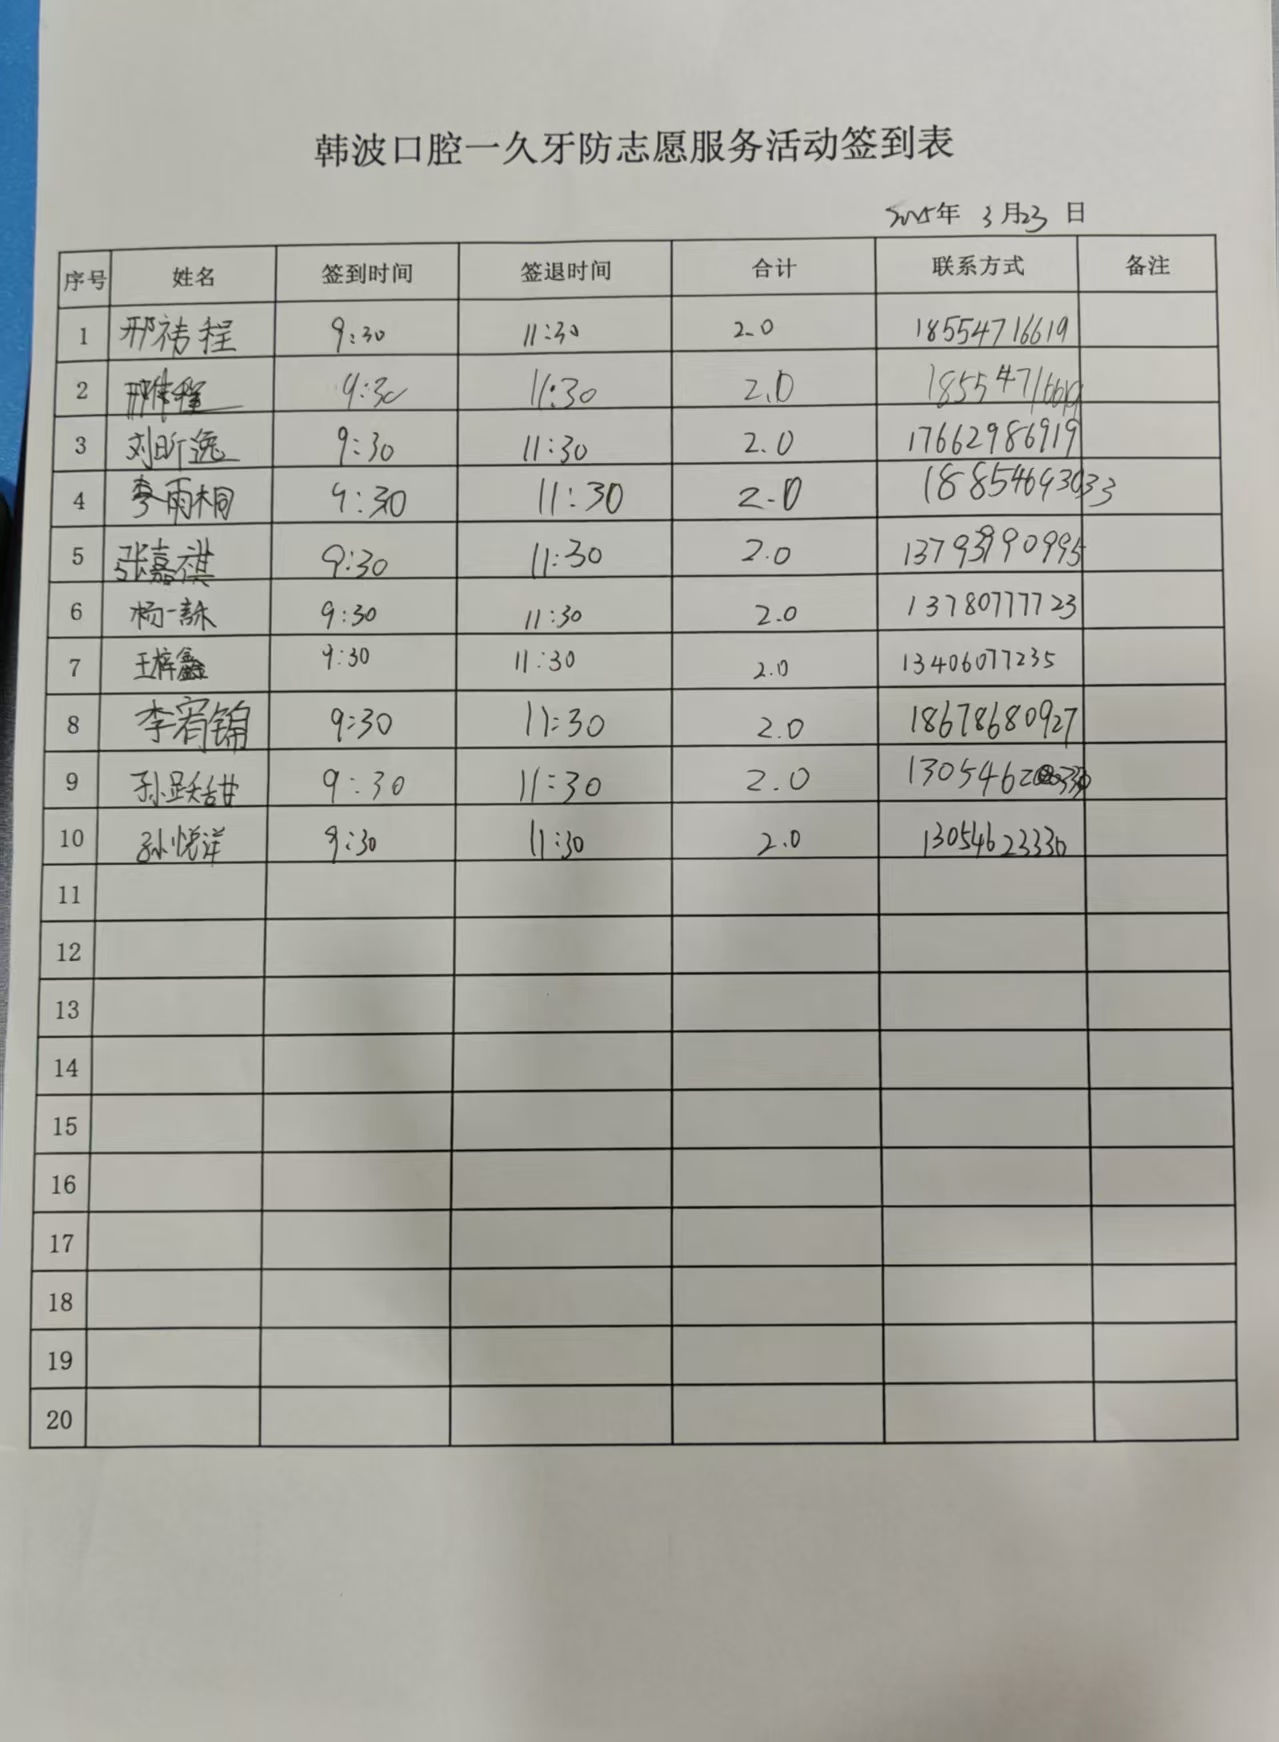 韩波口腔一久牙防志愿服务活动签到表
2025年 3月23日
序号 姓名 签到时间 签退时间 合计 联系方式 备注
1 邢祎程 9:30 11:30 2.0 18554716619
2 邢程 9:30 11:30 2.0 18554716619
3 刘昕逸 9:30 11:30 2.0 17662986919
4 李雨桐 9:30 11:30 2.0 18854693033
5 张嘉祺 9:30 11:30 2.0 13793990995
6 杨一 9:30 11:30 2.0 13780777723
7 王梓鑫 9:30 11:30 2.0 13406077235
8 李宥锦 9:30 11:30 2.0 18678680927
9 孙跃甜 9:30 11:30 2.0
10 孙悦洋 9:30 11:30 2.0 13054623330
11
12
13
14
15
16
17
18
19
20